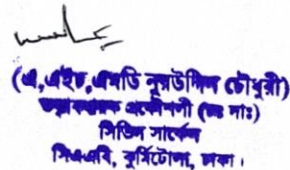 (এ,এইচ,এমডি নূরউদ্দিন চৌধুরী)
তত্ত্বাবধায়ক প্রকৌশলী (চঃ দাঃ)
সিভিল সার্কেল
সিএএবি, কুর্মিটোলা, ঢাকা।